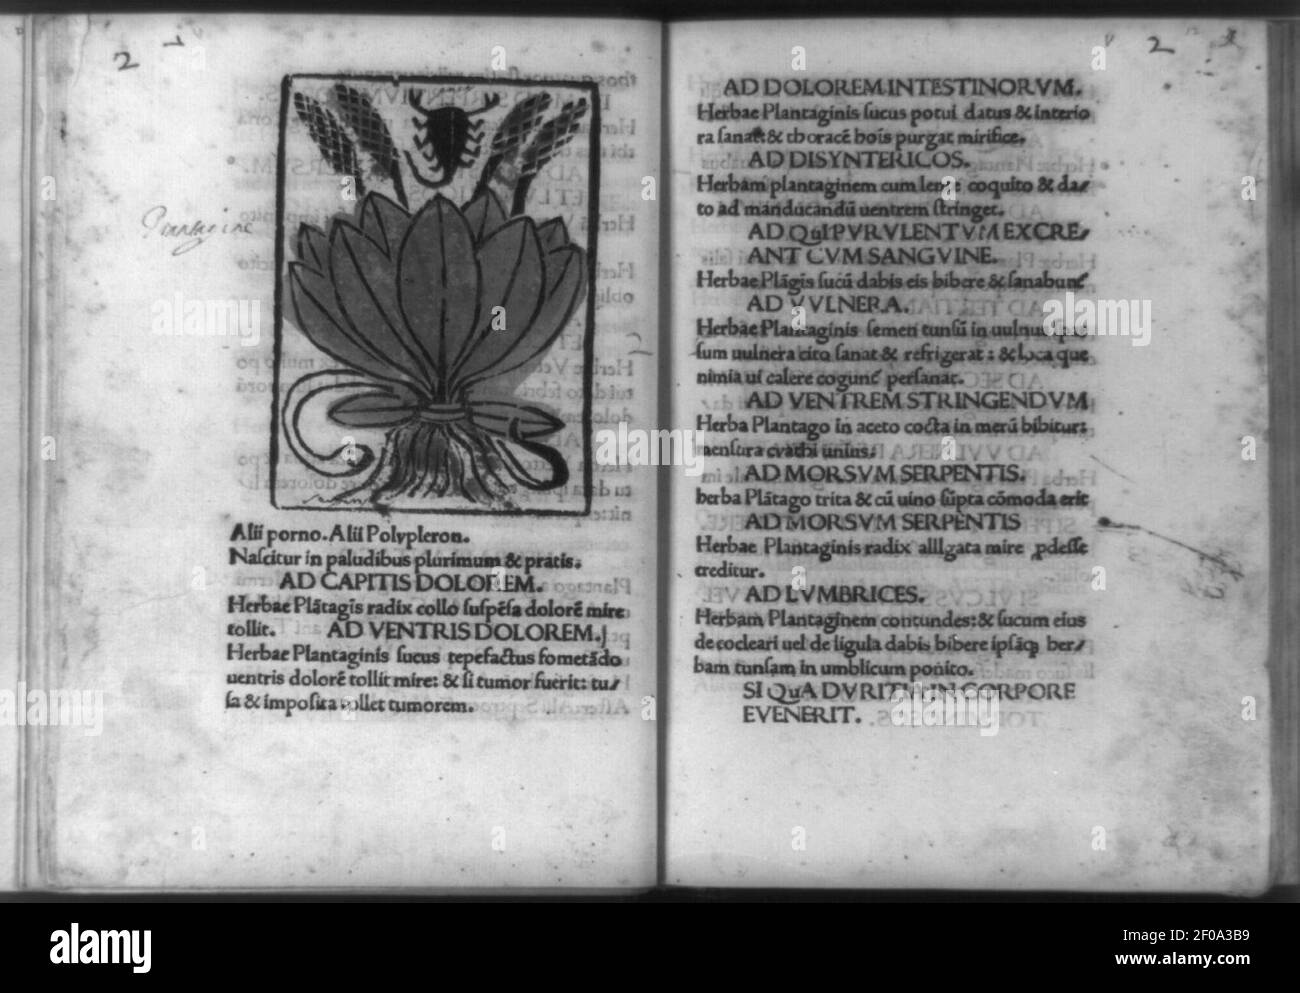 2
2
Plantagine
Alii porno. Alii Polypleron.
Nascitur in paludibus plurimum & pratis.
AD CAPITIS DOLOREM.
Herbae Plātagis radix collo suspēsa dolorē mire
tollit. AD VENTRIS DOLOREM.
Herbae Plantaginis sucus tepefactus fometādo
uentris dolorē tollit mire: & si tumor fuerit: tu/
sa & imposita tollet tumorem.
AD DOLOREM INTESTINORVM.
Herbae Plantaginis sucus potui datus & interio
ra sanat & thoracē hois purgat mirifice.
AD DISYNTERICOS.
Herbam plantaginem cum lente coquito & da/
to ad manducandū uentrem stringet.
AD QuI PVRVLENTVM EXCRE/
ANT CVM SANGVINE.
Herbae Plāgis sucū dabis eis bibere & sanabunt
AD VVLNERA.
Herbae Plantaginis semen tunsū in uulnus
sum uulnera cito sanat & refrigerat: & loca que
nimia ui calere cogunt persanat.
AD VENTREM STRINGENDVM
Herba Plantago in aceto cocta in merū bibitur:
mensura cyathi unius.
AD MORSVM SERPENTIS.
herba Plātago trita & cū uino sūpta cōmoda erit
AD MORSVM SERPENTIS
Herbae Plantaginis radix alligata mire ꝓdesse
creditur.
AD LVMBRICES.
Herbam Plantaginem contundes: & sucum eius
de cocleari uel de ligula dabis bibere ipsāq; her/
bam tunsam in umblicum ponito.
SI QuA DVRITIA IN CORPORE
EVENERIT.
alamy
Image ID: 2F0A3B9
www.alamy.com